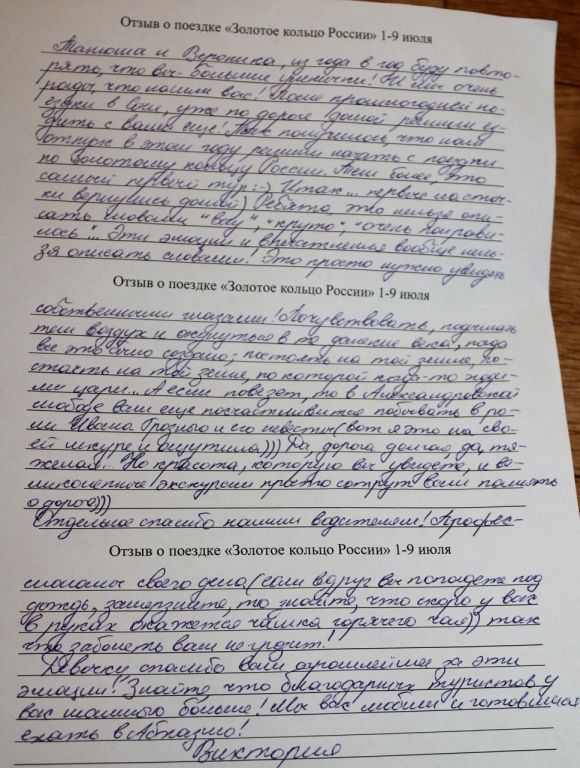 Отзыв о поездке «Золотое кольцо России» 1-9 июля
Танюша и Вероника, из года в год буду повто-
рять, что вы - большие умнички! И мы очень
рады, что нашли вас! После прошлогодней по-
ездки в Сочи, уже по дороге домой решили ез-
дить с вами еще! Так получилось, что наш
отпуск в этом году решили начать с поездки
по Золотому кольцу России. Тем более, это
самый первый тур :-) Итак... первые ласточ-
ки вернулись домой) Ребята, это нельзя опи-
сать словами "вау", "круто", "очень понрави-
лось"... Эти эмоции и впечатления вообще нель-
зя описать словами! Это просто нужно увидеть
Отзыв о поездке «Золотое кольцо России» 1-9 июля
собственными глазами! Почувствовать, подышать
тем воздухом и окунуться в те далекие века, когда
все это было создано; постоять на той земле, по-
стоять на той земле, по которой когда-то ходи-
ли цари... А если повезет, то в Александровской
слободе вам еще посчастливится побывать в ро-
ли Ивана Грозного и его невесты (вот я это на сво-
ей шкуре и ощутила))) Да, дорога долгая, да, тя-
желая... Но красота, которую вы увидете, и ве-
ликолепные экскурсии просто сотрут вам память
о дороге)))
Отдельное спасибо нашим водителям! Профес-
Отзыв о поездке «Золотое кольцо России» 1-9 июля
сионалы своего дела (если вдруг вы попадете под
дождь, замерзнете, то знайте, что скоро у вас
в руках окажется чашка горячего чая)) так
что заболеть вам не грозит!
Девочки спасибо вам огромнейшее за эти
эмоции! Знайте что благодарных туристов у
вас намного больше! Мы вас любим и готовимся
ехать в Абхазию!
Виктория